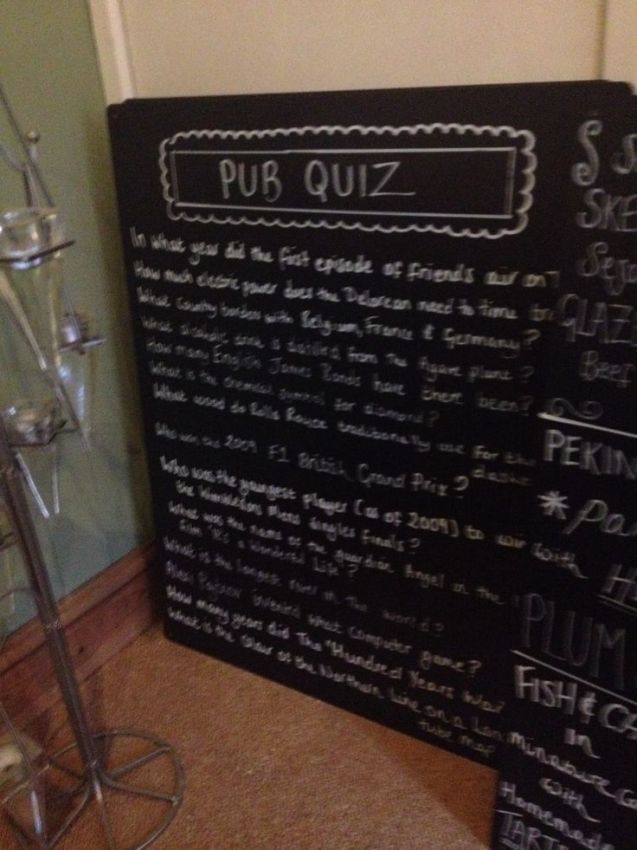 PUB QUIZ
In what year did the first episode of Friends air on?
How much electric power does the Delorean need to time
What country borders with Belgium, France & Germany?
What alcoholic drink is distilled from the Agave plant?
How many English James Bonds have there been?
What is the chemical symbol for diamond?
What wood do Rolls Royce traditionally use for their
dashes
Who won the 2009 F1 British Grand Prix?
Who was the youngest player (as of 2009) to win
the Wimbledon Mens Singles finals?
What was the name of the guardian Angel in the
film "It's a Wonderful Life"?
What is the longest river in The world?
Alexi Pajitnov invented what computer game?
How many years did The "Hundred Years War
What is the colour of the Northern Line on a Lon
tube map
S
SKE
GLAZ
Beer
PEKIN
* Pa
with
H
PLUM
FISH & CA
in
Miniature Co
with
Homemade
TART